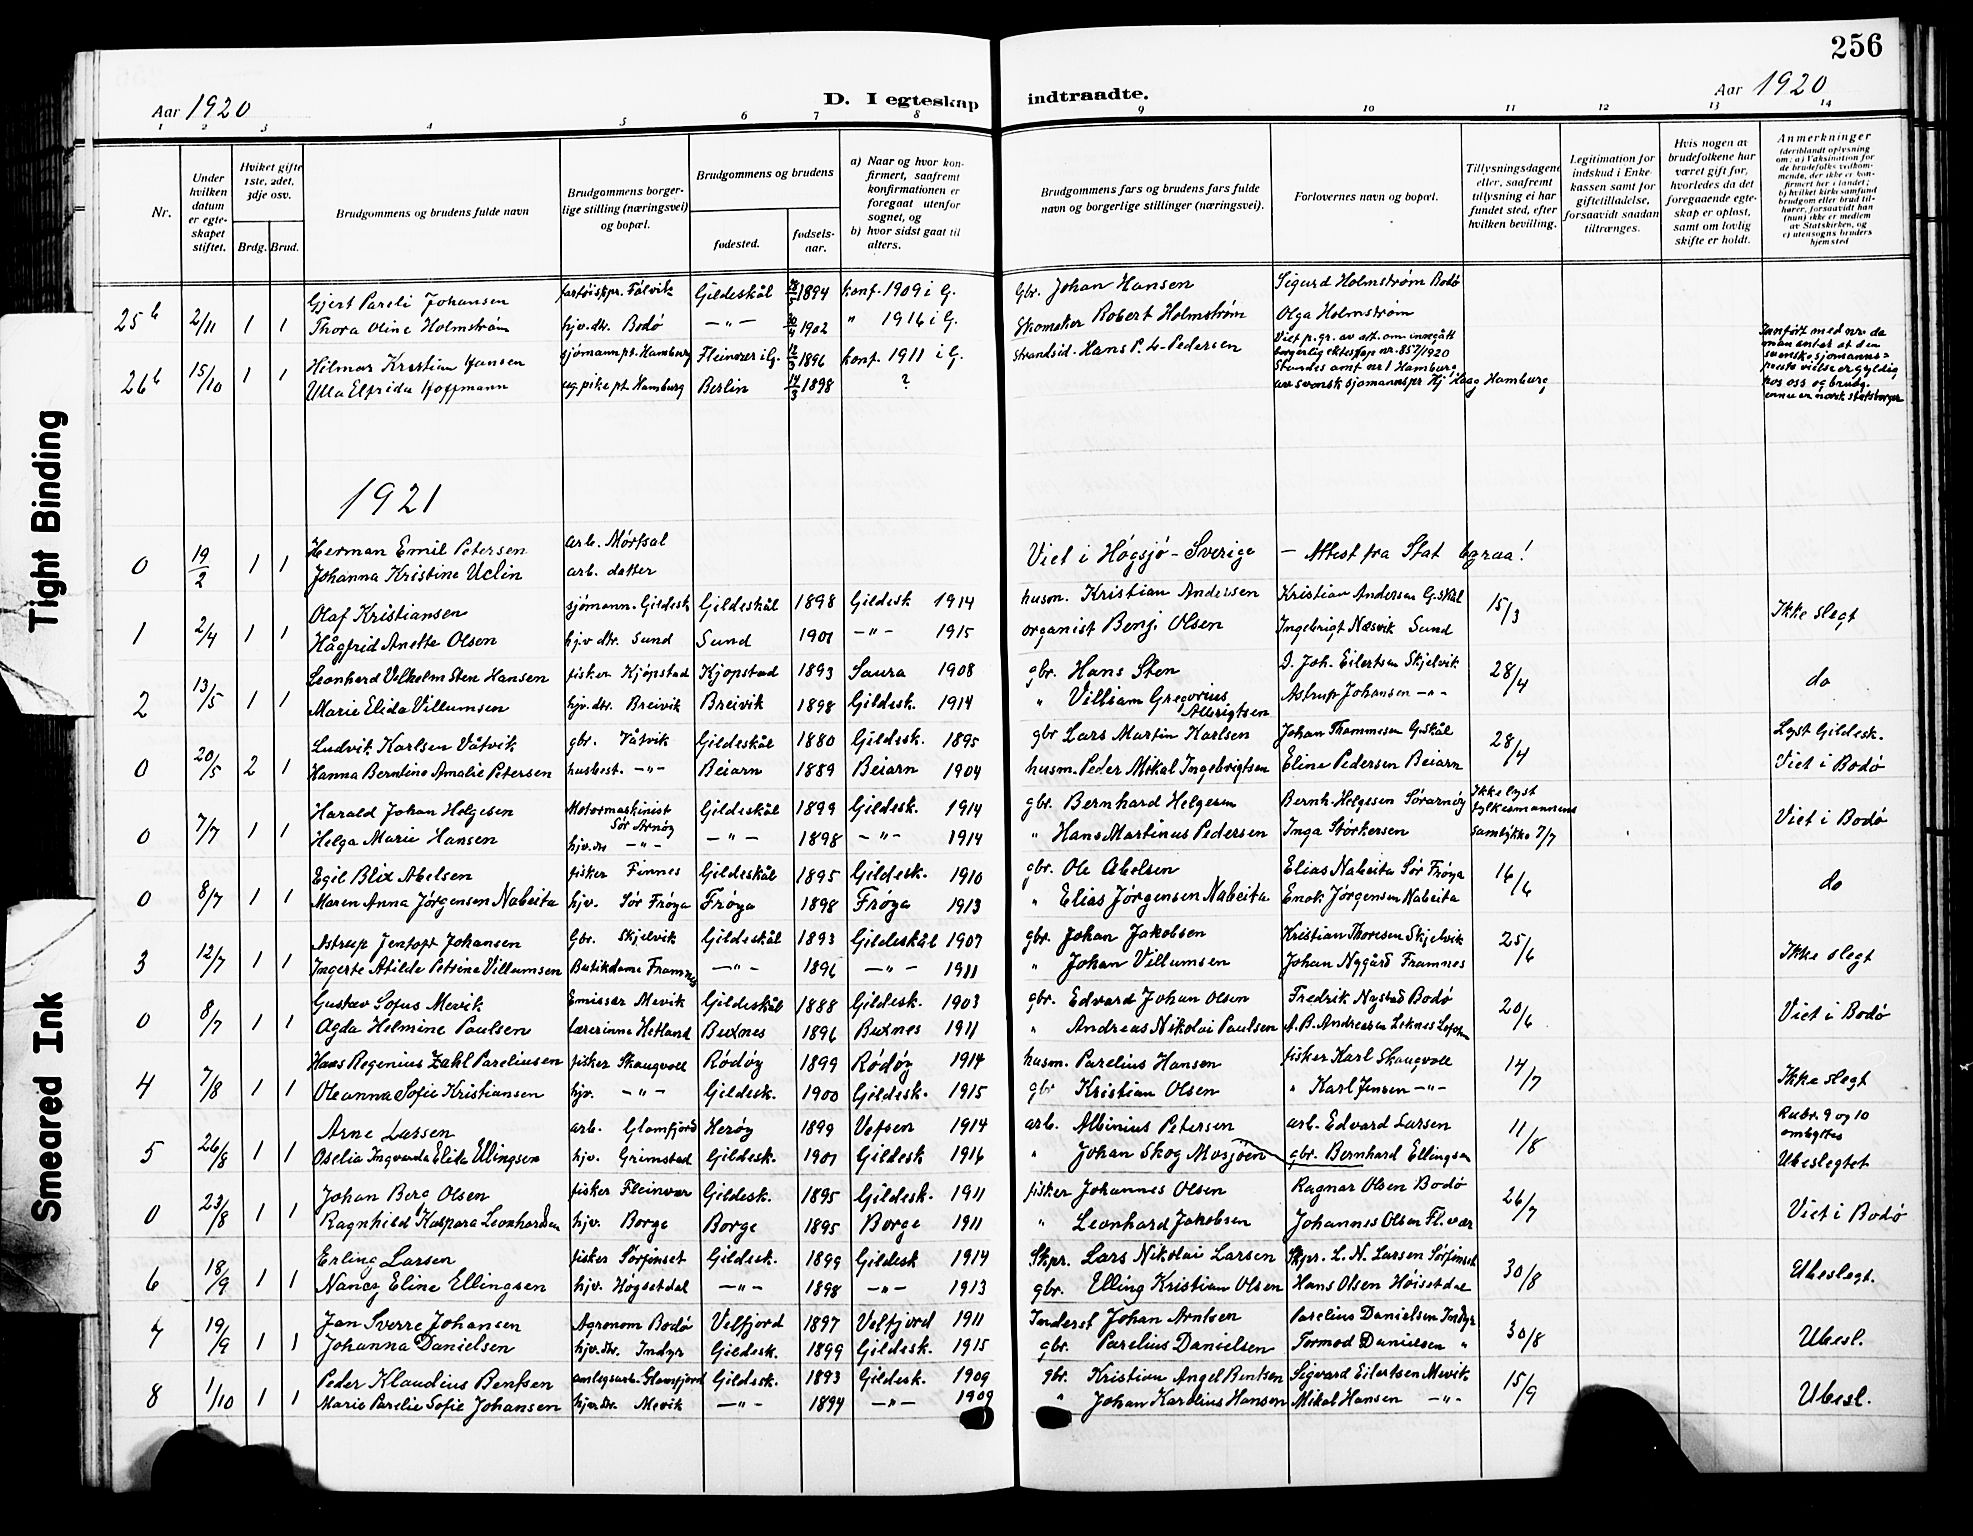 256
Aar 1920 D. I egteskap indtraadte. Aar 1920
1 2 3 4 5 6 7 8 9 10 11 12 13 14
Nr.
Under hvilken datum er egte-skapet stiftet.
Hviket gifte 1ste, 2det, 3dje osv.
Brdg. Brud.
Brudgommens og brudens fulde navn
Brudgommens borger-lige stilling (næringsvei) og bopæl.
Brudgommens og brudens
fødested.
fødsels-aar.
a) Naar og hvor kon-firmert, saafremt konfirmationen er foregaat utenfor sognet, og
b) hvor sidst gaat til alters.
Brudgommens fars og brudens fars fulde navn og borgerlige stillinger (næringsvei).
Forlovernes navn og bopæl.
Tillysningsdagene eller, saafremt tillysning ei har fundet sted, efter hvilken bevilling.
Legitimation for indskud i Enke-kassen samt for giftetilladelse, forsaavidt saadan tiltrænges.
Hvis nogen av brudefolkene har været gift før, hvorledes da det foregaaende egte-skap er opløst, samt om lovlig skifte er holdt.
Anmerkninger (deriblandt oplysning om: a) Vaksination for de brudefolks vedkom-mende, der ikke er kon-firmert her i landet; b) hvilket kirkesamfund brudgom eller brud til-hører, forsaavidt han (hun) ikke er medlem av Statskirken, og c) utensogns bruders hjemsted
Gjert Pareli Johansen fartøiskpr. Fålvik Gildeskål 1894 konf. 1909 i G. Gbr. Johan Hansen Sigurd Holmstrøm Bodø
25 b 2/11 1 1 Thora Oline Holmstrøm hjv. dtr. Bodø —"— 1902 " 1916 i G. Skomaker Robert Holmstrøm Olga Holmstrøm
Hilmar Kristian Hansen sjømann pt. Hamburg Fleinvær i G. 1896 konf. 1911 i G. Strandsid. Hans P. L. Pedersen Viet p. gr. av att. om inngått borgerlig ekteskap nr. 857/1920
26 b 15/10 1 1 Ulla Elfrida Hoffmann ug. pike pt Hamburg Berlin 14/3 1898 ? Standes amt nr 1 Hamburg, av svensk sjømannspr Hj Haag Hamburg,
Innført med nr. da man antar at den svenske sjømanns-prests vielse er gyldig hos oss og brudg. ennu er norsk statsborger
1921
Herman Emil Petersen arb. Mørfsal
0 19/2 1 1 Johanna Kristine Uclin arb. datter Viet i Högsjö - Sverige — Attest fra Stat byraa!
Olaf Kristiansen sjømann. Gildesk Gildeskål 1898 Gildesk 1914 husm. Kristian Andersen Kristian Andersen G.skål
1 2/4 1 1 Hågfrid Anette Olsen hjv dtr. Sund Sund 1901 —"— 1915 organist Benj. Olsen Ingebrigt Næsvik Sund 15/3 Ikke slegt
Leonhard Vilhelm Sten Hansen fisker Kjøpstad Kjøpstad 1893 Saura 1908 gbr. Hans Sten D. Joh. Eilertsen Skjelvik
2 13/5 1 1 Marie Elida Villumsen hjv. dtr. Breivik Breivik 1898 Gildesk. 1914 " Villiam Gregorius Albrigtsen Astrup Johansen —"— 28/4 do
Ludvik Karlsen Våtvik gbr. Våtvik Gildeskål 1880 Gildesk. 1895 gbr Lars Martin Karlsen Johan Thommesen G.skål Lyst Gildesk.
0 20/5 2 1 Hanna Berntine Amalie Petersen husbest. —"— Beiarn 1889 Beiarn 1904 husm. Peder Mikal Ingebrigtsen Eline Pedersen Beiarn 28/4 Viet i Bodø
Harald Johan Helgesen Motormaskinist Sør Arnøy Gildeskål 1899 Gildesk. 1914 gbr. Bernhard Helgesen Bernh. Helgesen Sørarnøy Ikke lyst fylkesmannens
0 7/7 1 1 Helga Marie Hansen hjv. dtr —"— —"— 1898 —"— 1914 " Hans Martinus Pedersen Inga Størkersen samtykke 7/7 Viet i Bodø
Egil Blix Abelsen fisker Finnes Gildeskål 1895 Gildesk. 1910 gbr. Ole Abelsen Elias Nabeita Sør Frøya
0 8/7 1 1 Maren Anna Jørgensen Nabeita hjv. Sør Frøya Frøya 1898 Frøya 1913 " Elias Jørgensen Nabeita Enok Jørgensen Nabeita 16/6 do
Astrup Jentoft Johansen Gbr. Skjelvik Gildeskål 1893 Gildeskål 1907 gbr. Johan Jakobsen Kristian Thoresen Skjelvik
3 12/7 1 1 Ingerte Atilde Petrine Villumsen Butikdame Framnes —"— 1896 —"— 1911 " Johan Villumsen Johan Nygård Framnes 25/6 Ikke slegt
Gustav Sofus Mevik Emissær Mevik Gildeskål 1888 Gildesk. 1903 gbr. Edvard Johan Olsen Fredrik Nystad Bodø
0 8/7 1 1 Agda Helmine Paulsen Lærerinne Hetland Buxnes 1896 Buxnes 1911 " Andreas Nikolai Paulsen A. B. Andreasen Leknes Lofoten 20/6 Viet i Bodø
Hans Regenius Zahl Pareliussen fisker Skaugvoll Rødøy 1899 Rødøy 1914 husm. Parelius Hansen fisker Karl Skaugvoll
4 7/8 1 1 Oleanna Sofie Kristiansen hjv. —"— Gildesk. 1900 Gildesk. 1915 gbr Kristian Olsen " Karl Jensen —"— 14/7 Ikke slegt
Arne Larsen arb. Glomfjord Herøy 1899 Vefsen 1914 arb. Albinius Petersen arb. Edvard Larsen Rubr. 9 og 10 ombyttes
5 26/8 1 1 Oselia Ingvarda Elida Ellingsen hjv. Grimstad Gildesk. 1901 Gildesk 1916 " Johan Skog Mosjøen gbr. Bernhard Ellingsen 11/8 Ubeslegtet
Johan Berg Olsen fisker Fleinvær Gildesk. 1895 Gildesk. 1911 fisker Johannes Olsen Ragnar Olsen Bodø
0 23/8 1 1 Ragnhild Kaspara Leonhardsen hjv. Borge Borge 1895 Borge 1911 " Leonhard Jakobsen Johannes Olsen Fl.vær 26/7 Viet i Bodø
Erling Larsen fisker Sørfinset Gildesk. 1899 Gildesk 1914 Skpr. Lars Nikolai Larsen Skpr. L. N. Larsen Sørfinset
6 18/9 1 1 Nancy Eline Ellingsen hjv. Høgsetdal —"— 1898 —"— 1913 gbr. Elling Kristian Olsen Hans Olsen Høisetdal 30/8 Ubeslegt.
Jan Sverre Johansen Agronom Bodø Velfjord 1897 Velfjord 1911 Inderst Johan Arntsen Parelius Danielsen Indyr
7 19/9 1 1 Johanna Danielsen hjv. dtr. Indyr Gildesk. 1899 Gildesk. 1915 gbr. Parelius Danielsen Tormod Danielsen " 30/8 Ubesl.
Peder Klaudius Bentsen anlegsarb. Glomfjord Gildesk. 1893 Gildesk. 1909 gbr. Kristian Angel Bentsen Sigvard Eilertsen Mevik
8 1/10 1 1 Marie Parelie Sofie Johansen hjv. dtr. Mevik —"— 1894 —"— 1909 " Johan Karolius Hansen Mikal Hansen —"— 15/9 Ubesl.
Tight Binding
Smeared Ink